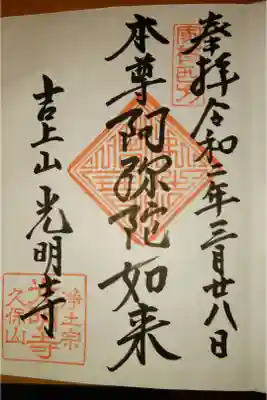 奉拝 令和二年三月廿八日
本尊 阿弥陀如来
吉上山 光明寺
浄土宗
光明寺
久保山